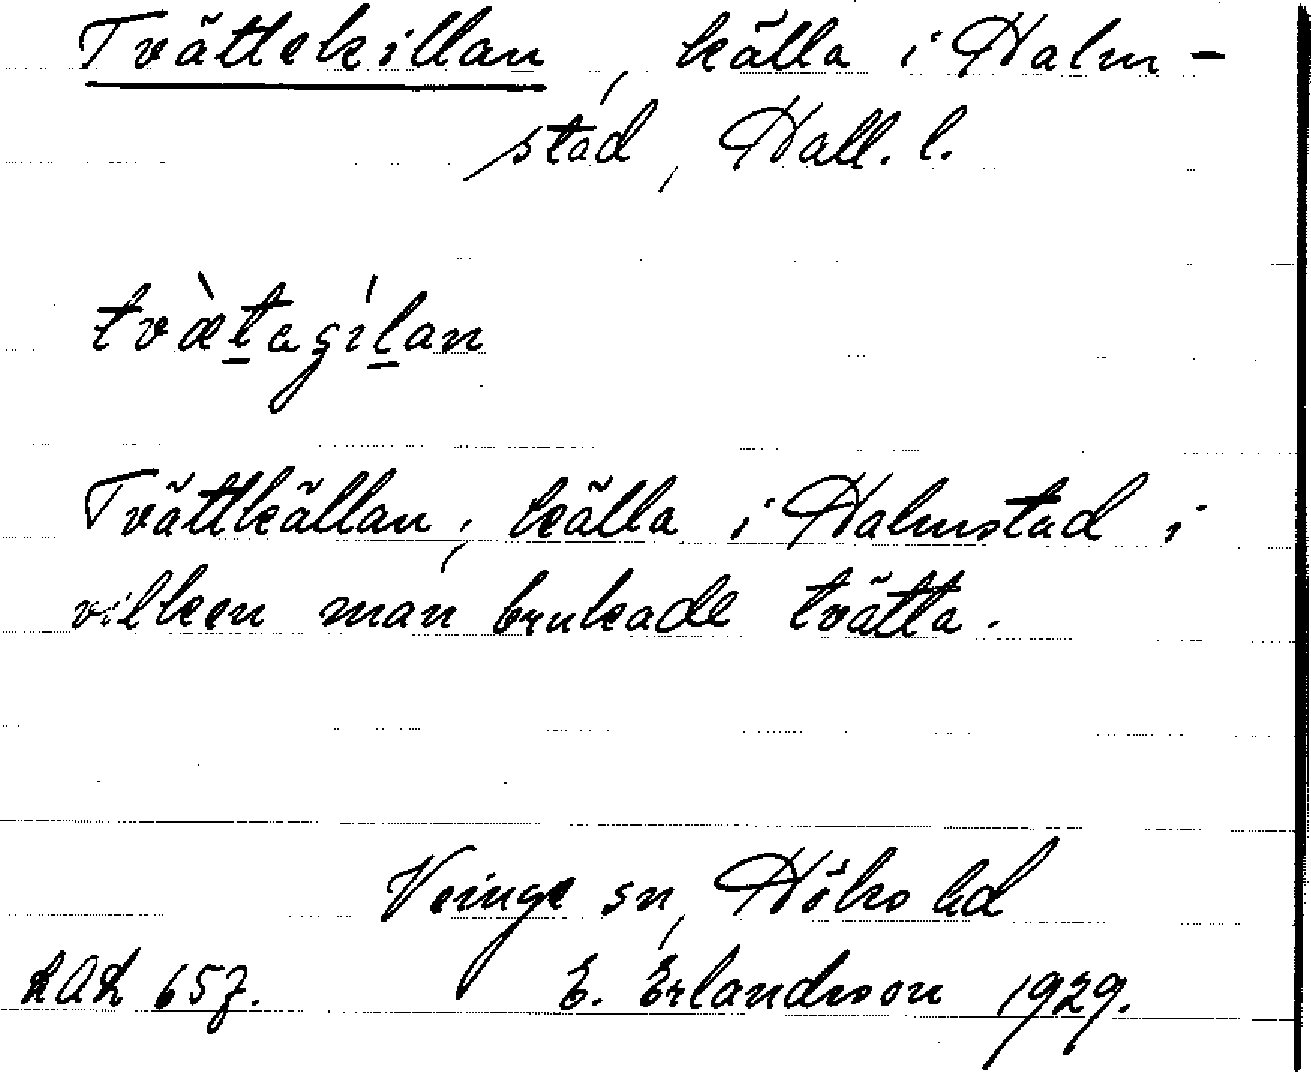 Tvättekillan, källa i Halm-
stad, Hall. l.
tvæ̀t̲agíl̲an
Tvättkällan, källa i Halmstad i
vilken man brukade tvätta.
Veinge sn, Höks hd
LAL 657. E. Erlandsson 1929.